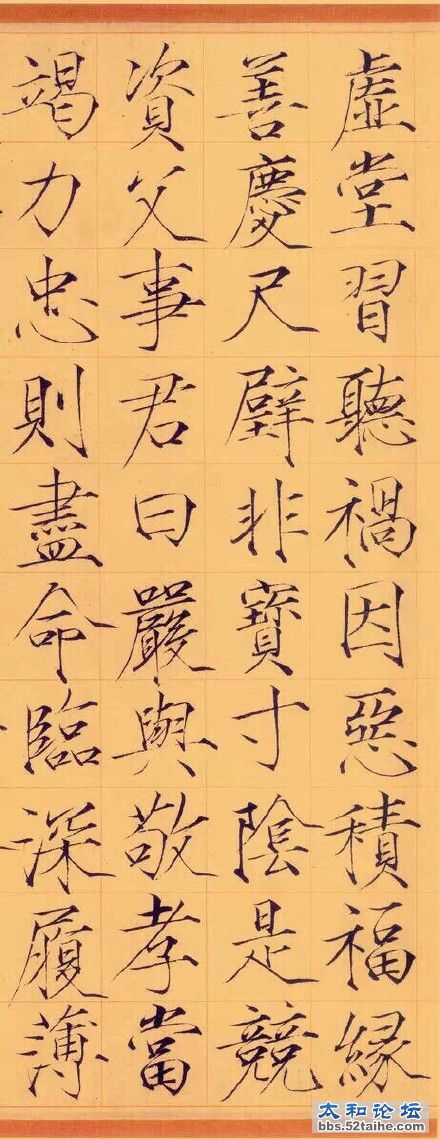 虛堂習聽禍因惡積福緣
善慶尺璧非寶寸陰是競
資父事君曰嚴與敬孝當
竭力忠則盡命臨深履薄
太和论坛
bbs.52taihe.com